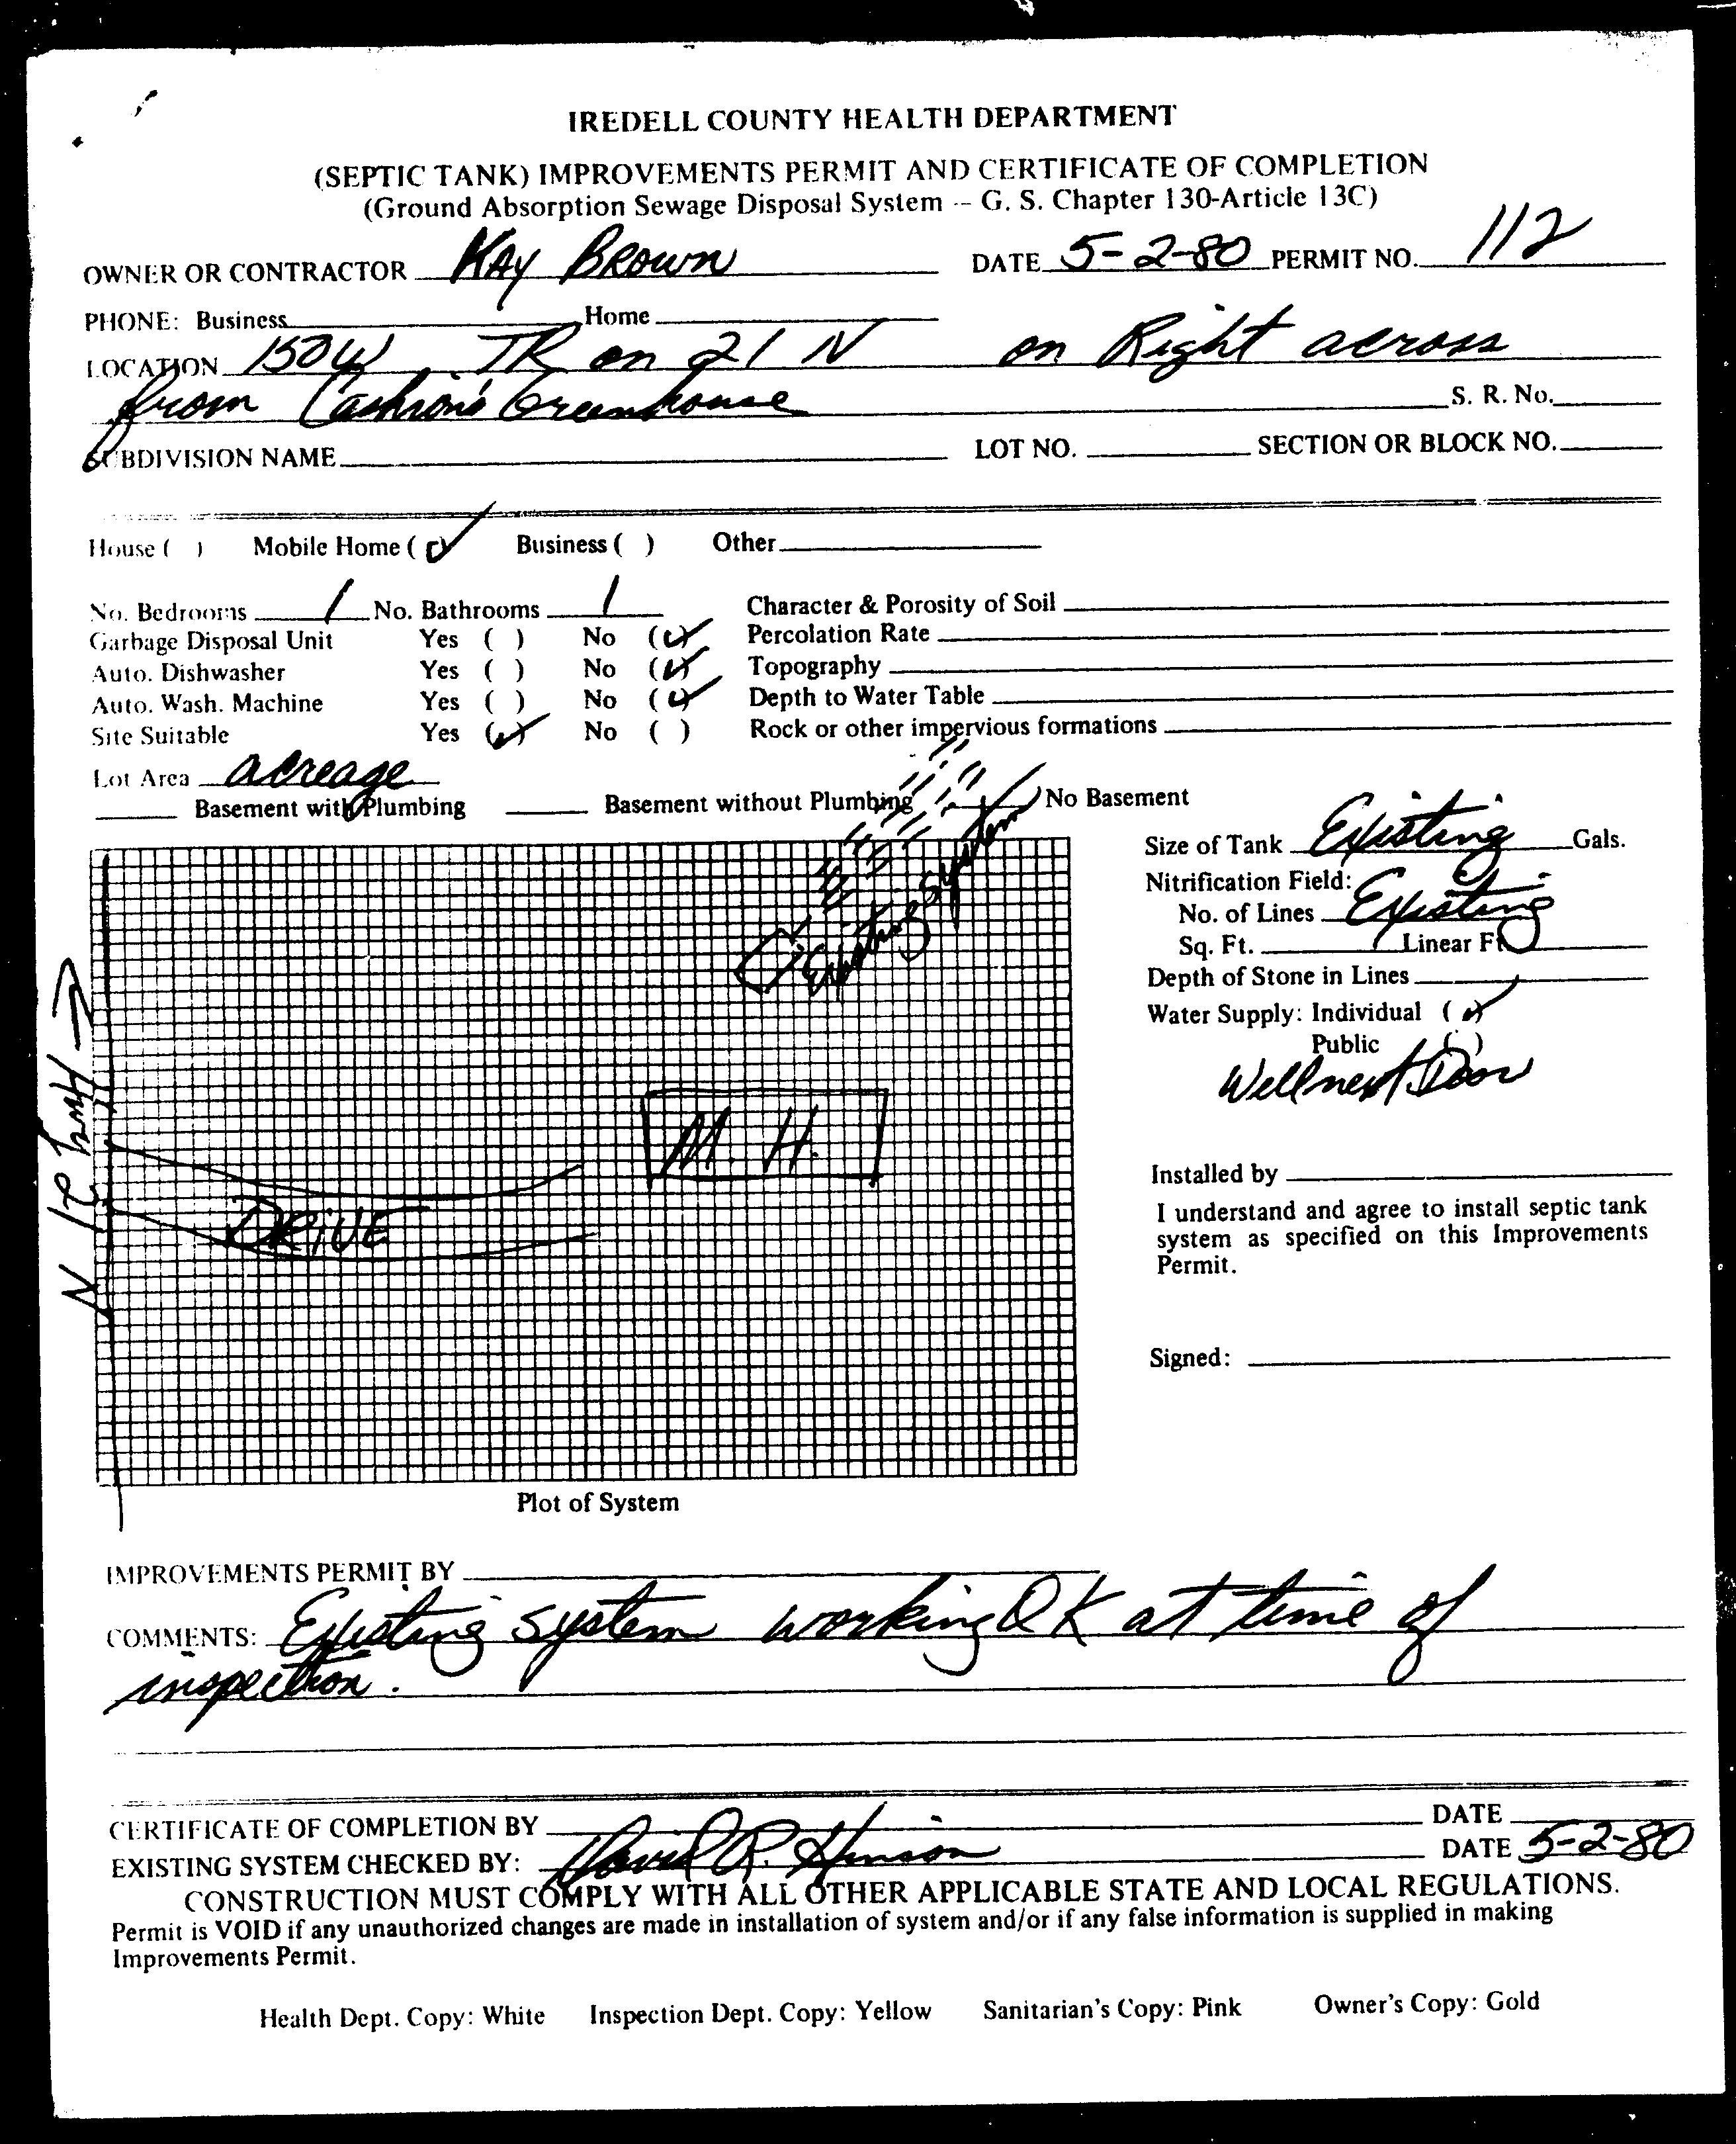 IREDELL COUNTY HEALTH DEPARTMENT
(SEPTIC TANK) IMPROVEMENTS PERMIT AND CERTIFICATE OF COMPLETION
(Ground Absorption Sewage Disposal System -- G. S. Chapter 130-Article 13C)
OWNER OR CONTRACTOR Kay Brown DATE 5-2-80 PERMIT NO. 112
PHONE: Business Home
LOCATION 150W TR on 21 N on Right across
from Cashion's Greenhouse S. R. No.
SUBDIVISION NAME LOT NO. SECTION OR BLOCK NO.
House ( ) Mobile Home (✓) Business ( ) Other
No. Bedrooms 1 No. Bathrooms 1 Character & Porosity of Soil
Garbage Disposal Unit Yes ( ) No (✓) Percolation Rate
Auto. Dishwasher Yes ( ) No (✓) Topography
Auto. Wash. Machine Yes ( ) No (✓) Depth to Water Table
Site Suitable Yes (✓) No ( ) Rock or other impervious formations
Lot Area acreage
Basement with Plumbing Basement without Plumbing ✓ No Basement
Size of Tank Existing Gals.
Nitrification Field:
No. of Lines Existing
Sq. Ft. Linear Ft.
Depth of Stone in Lines
Water Supply: Individual (✓)
Public ( )
Well next Door
Existing System
M. H.
DRIVE
N Hwy 21
Installed by
I understand and agree to install septic tank
system as specified on this Improvements
Permit.
Signed:
Plot of System
IMPROVEMENTS PERMIT BY
COMMENTS: Existing system working OK at time of
inspection.
CERTIFICATE OF COMPLETION BY DATE
EXISTING SYSTEM CHECKED BY: David R. Hinson DATE 5-2-80
CONSTRUCTION MUST COMPLY WITH ALL OTHER APPLICABLE STATE AND LOCAL REGULATIONS.
Permit is VOID if any unauthorized changes are made in installation of system and/or if any false information is supplied in making
Improvements Permit.
Health Dept. Copy: White Inspection Dept. Copy: Yellow Sanitarian's Copy: Pink Owner's Copy: Gold